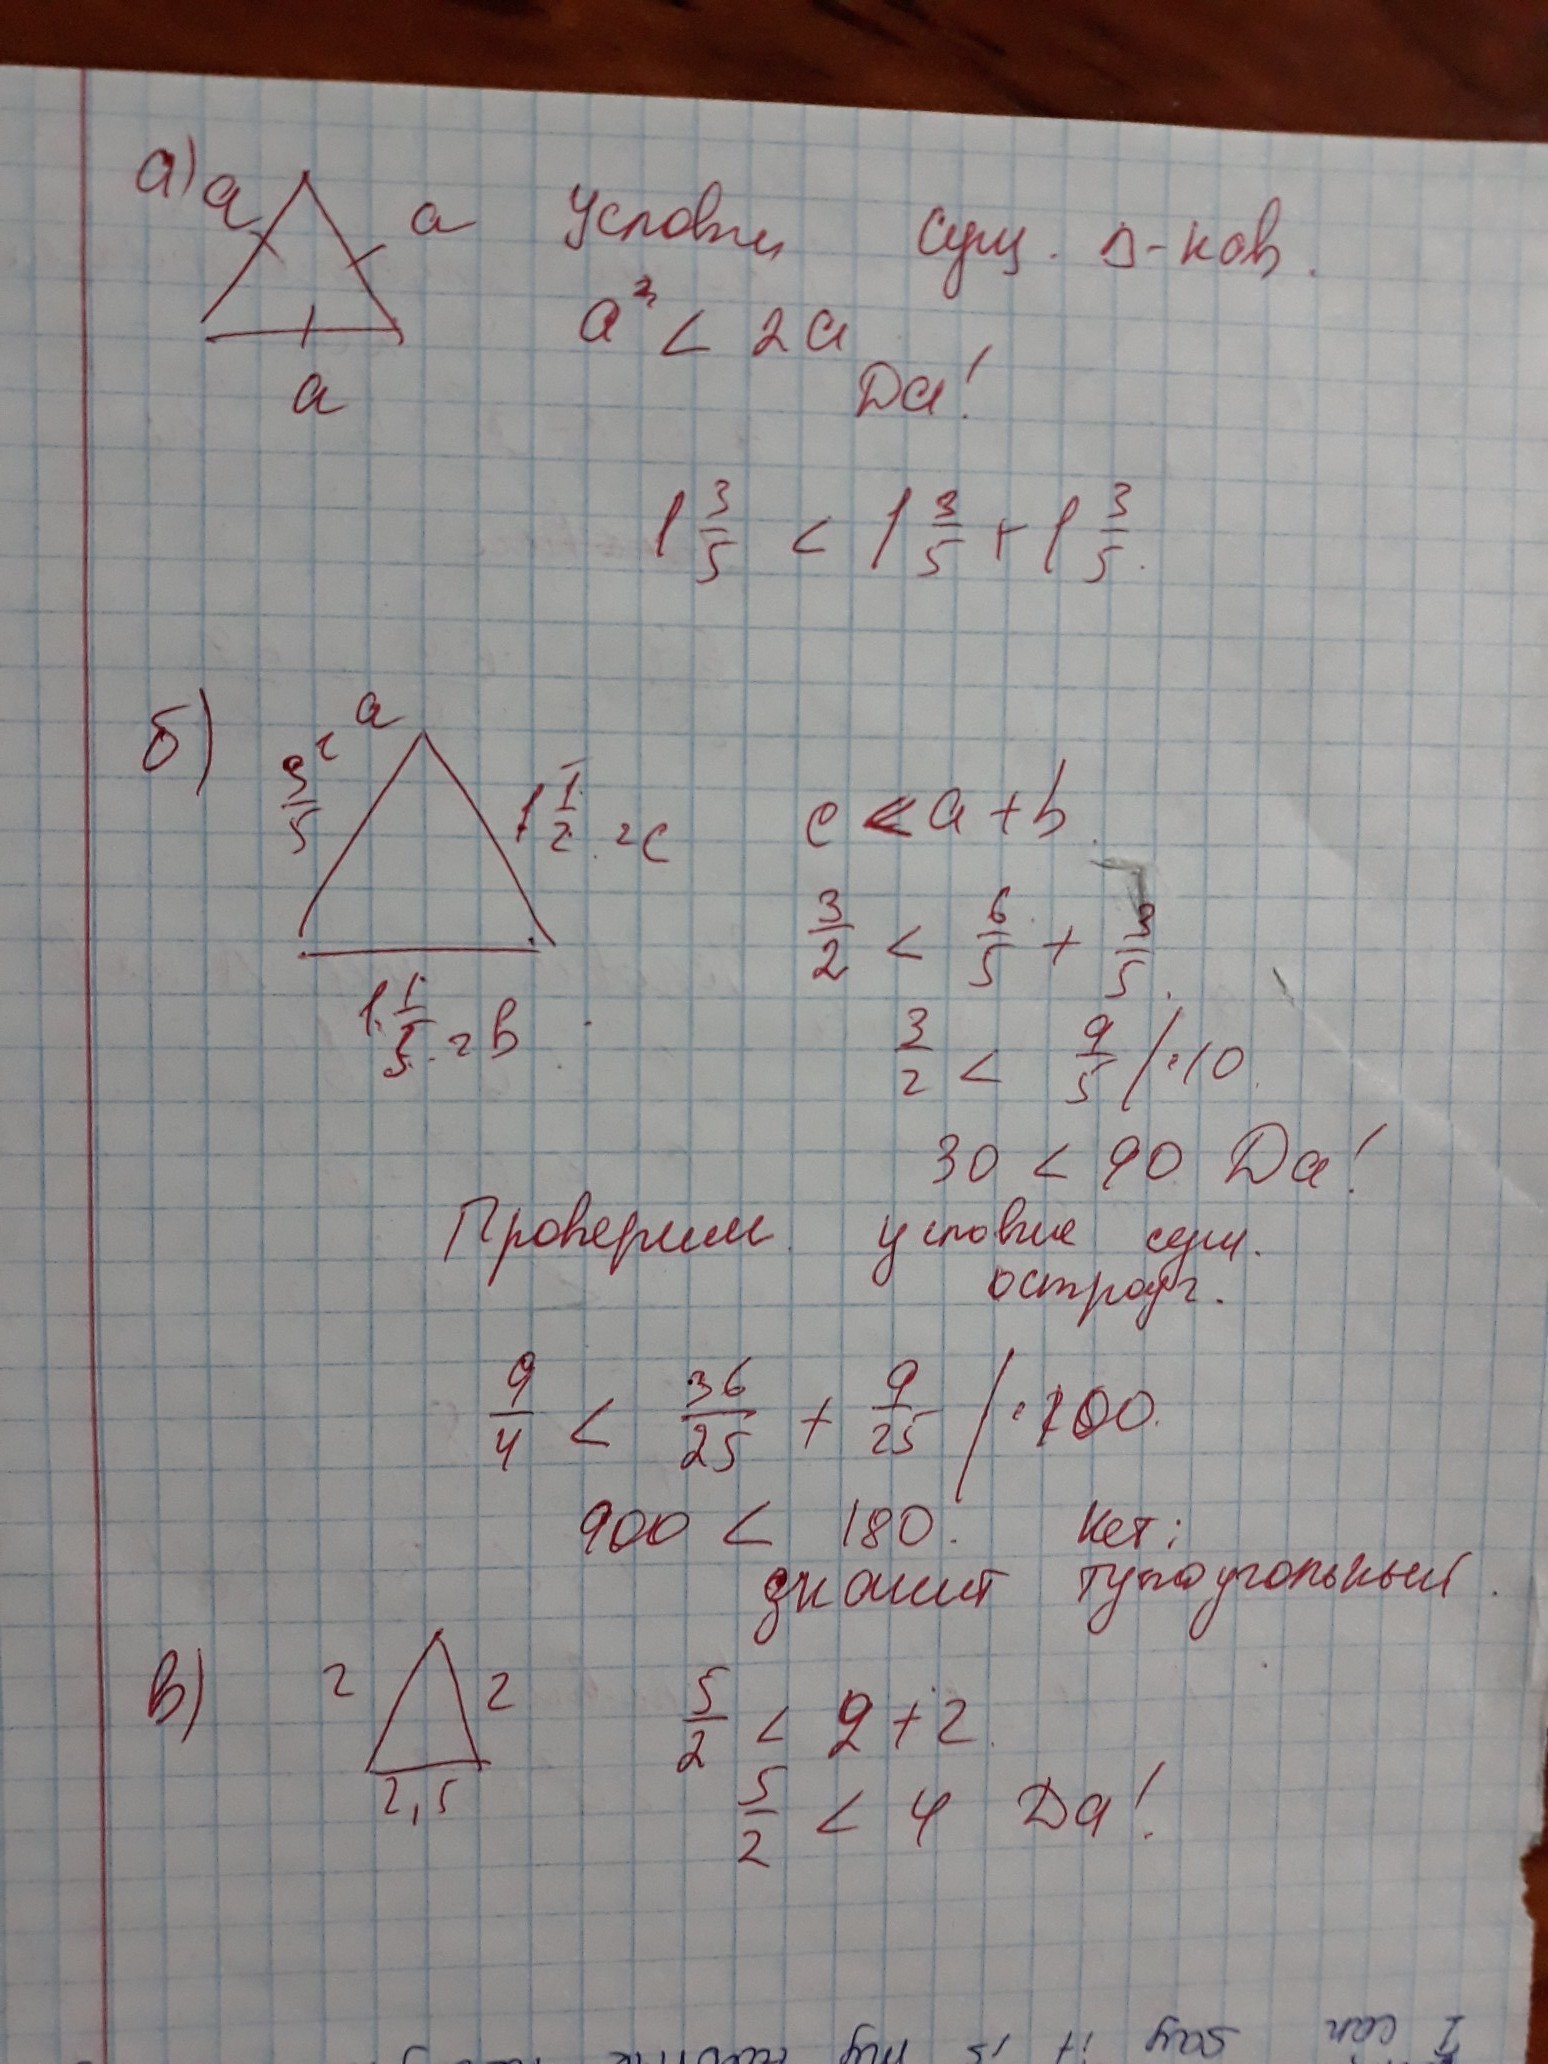 а) a a Условия сущ. Δ-ков.
a² < 2a
a Да!
1 3/5 < 1 3/5 + 1 3/5.
б) a
3/5 = 1 1/2 = c c < a + b.
3/2 < 6/5 + 3/5.
1 1/5 = b 3/2 < 9/5 / · 10.
30 < 90 Да!
Проверим условие сущ.
остроуг.
9/4 < 36/25 + 9/25 / · 100.
900 < 180. Нет;
значит тупоугольный.
в) 2 2 5/2 < 2 + 2.
2,5 5/2 < 4 Да!
I can say it is my